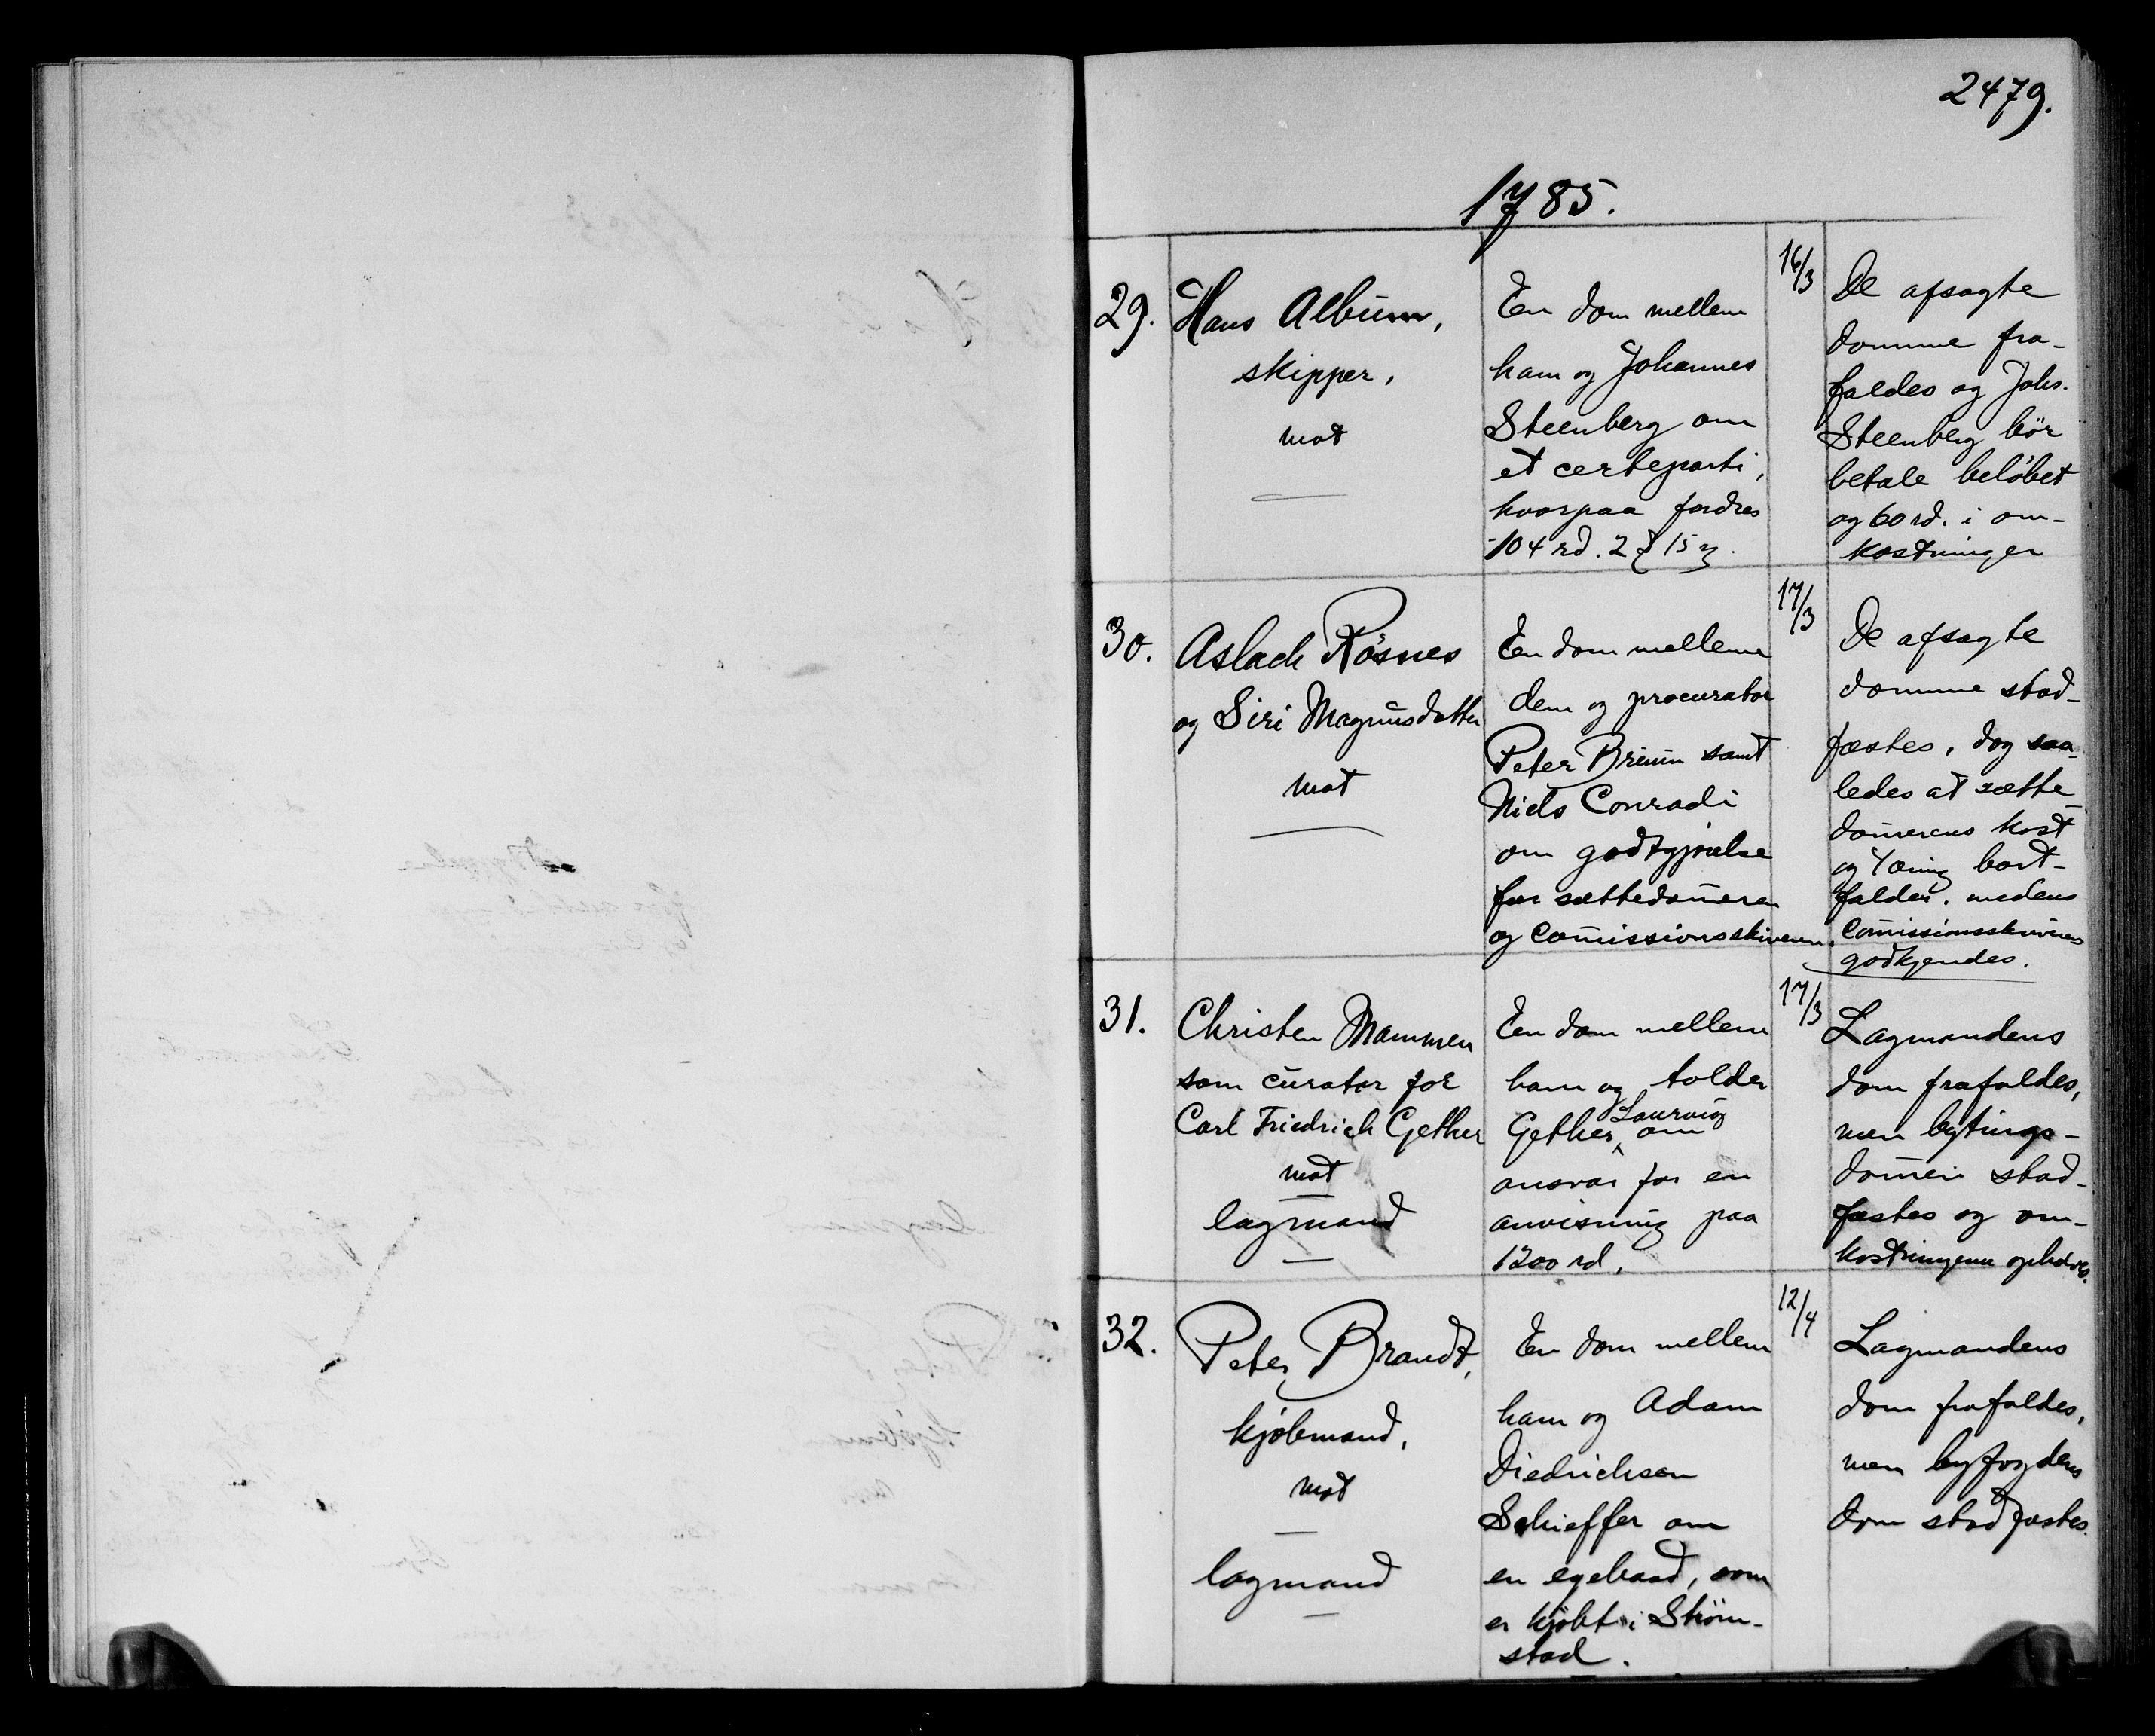 2479.
1785.
29.
Hans Album,
skipper,
mot
En dom mellem
ham og Johannes
Steenberg om
et certeparti,
hvorpaa fordres
104 rd. 2 15
16/3
De afsagte
domme fra-
faldes og Johs.
Steenberg bör
betale belöbet
og 60 rd. i om-
kostninger
30.
Aslach Rösnes
og Siri Magnusdatter
mot
En dom mellem
dem og procurator
Peter Bruun samt
Niels Conradi
om godtgjörelse
for sættedom̄eren
og Com̄issionsskriveren.
17/3
De afsagte
domme stad-
fæstes, dog saa-
ledes at sætte-
dom̄erens kost
og tæring bort-
falder, medens
Com̄issionsskriverens
godkjendes.
31.
Christen Mammen
som curator for
Carl Friedrich Gether
mot
lagmand
En dom mellem
ham og tolder
Gether, Laurvig om
ansvar for en
anvisning paa
1200 rd.
17/3
Lagmandens
dom frafaldes,
men bytings-
dom̄en stad-
fæstes og om-
kostningerne ophæves.
32.
Peter Brandt,
kjöbmand,
mot
lagmand
En dom mellem
ham og Adam
Diedrichsen
Schieffer om
en egebaad, som
er kjöbt i Ström-
stad.
12/4
Lagmandens
dom frafaldes,
men byfogdens
dom stadfæstes.